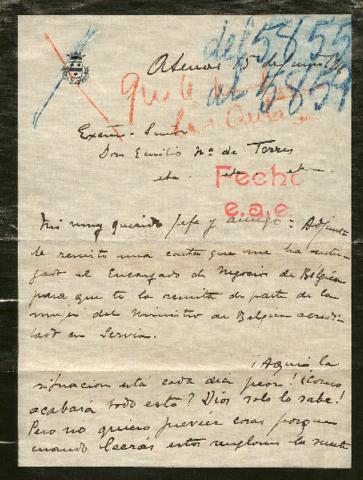 del 5855
al 5859
Atenas 15 de
que le
Excmo. Señor
Don Emilio Mª de Torres
etc. etc. etc.
Fecho
e.a.e.
Mi muy querido Jefe y amigo: Adjunta
le remito una carta que me ha entre-
gado el Encargado de Negocios de Bélgica
para que te la remita de parte de la
mujer del Ministro de Belgica acredi-
tado en Servia.
¡Aquí la
situacion está cada dia peor! ¿Como
acabará todo esto? Dios solo lo sabe!
Pero no quiero prever cosas porque
cuando leerás estos renglones la suerte